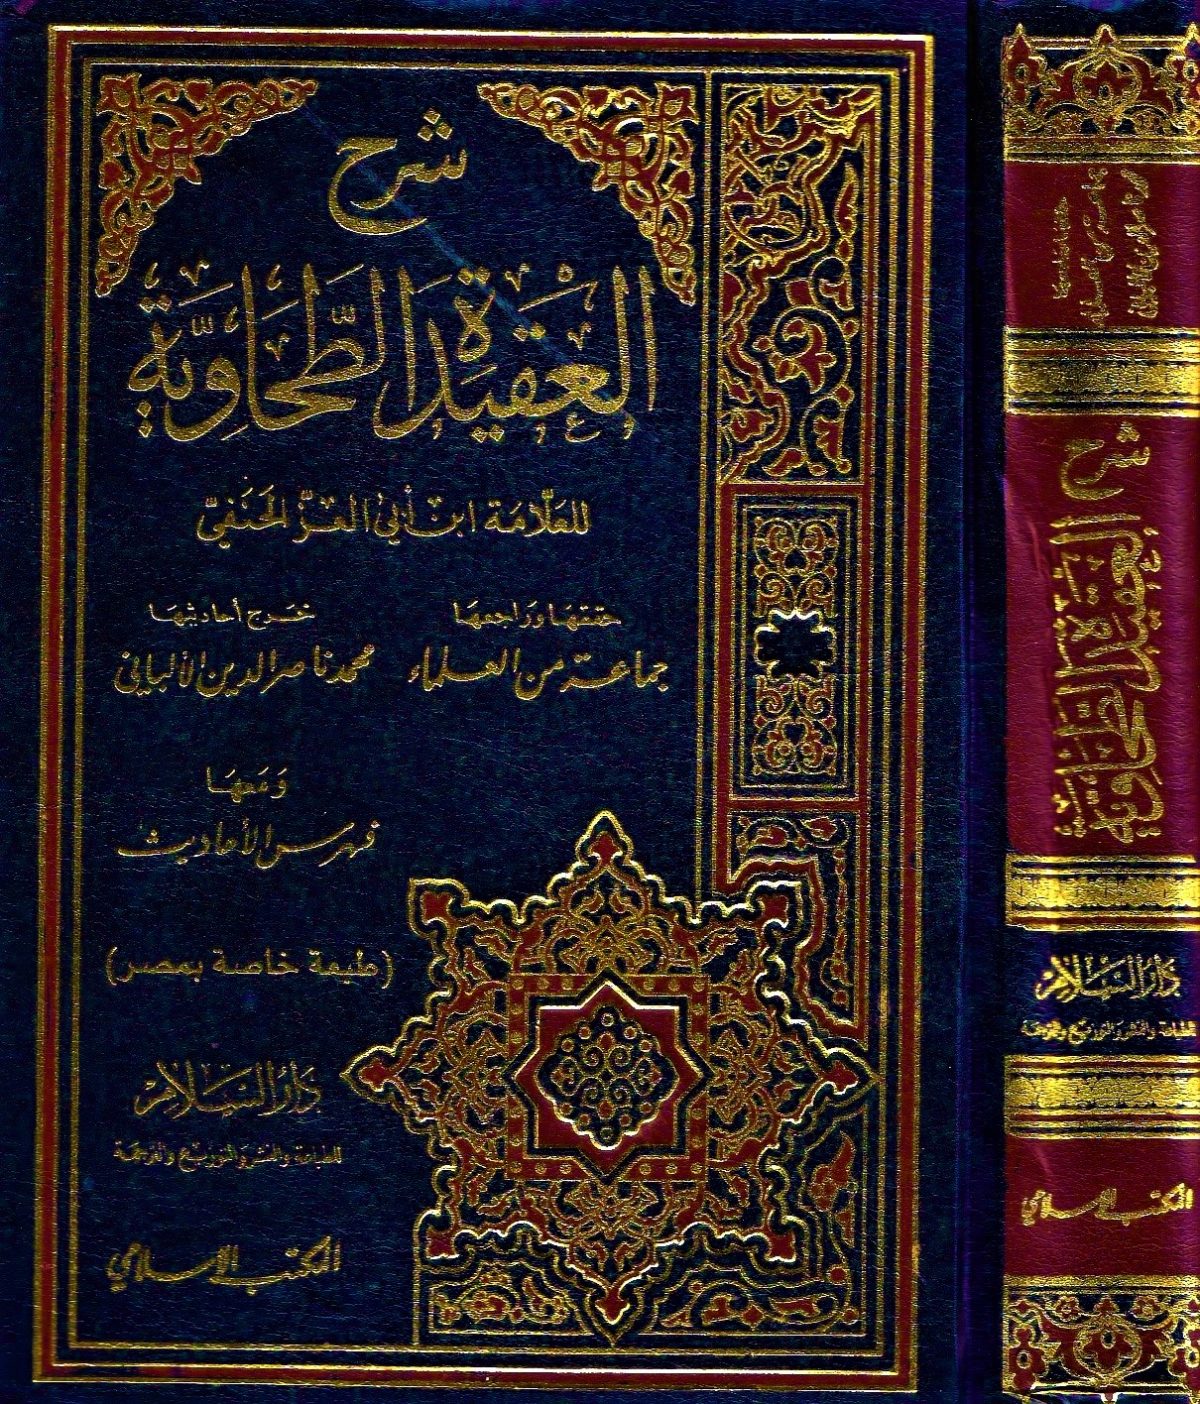 شرح
العقيدة الطحاوية
للعلامة ابن أبي العز الحنفي
حققها وراجعها
جماعة من العلماء
خرج أحاديثها
محمد ناصر الدين الألباني
ومعها
فهرس الأحاديث
(طبعة خاصة بمصر)
دار السلام
للطباعة والنشر والتوزيع والترجمة
المكتب الإسلامي
جماعة من العلماء
محمد ناصر الدين الألباني
شرح
العقيدة الطحاوية
دار السلام
للطباعة والنشر والتوزيع والترجمة
المكتب الإسلامي